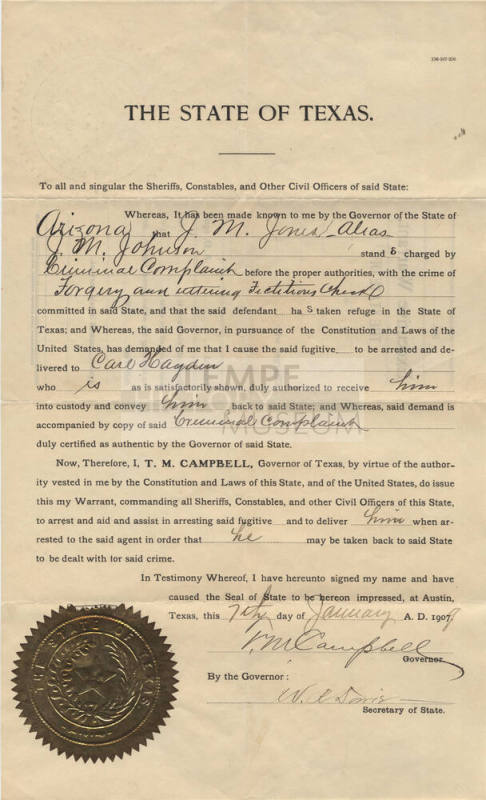 THE STATE OF TEXAS.
To all and singular the Sheriffs, Constables, and Other Civil Officers of said State:
Whereas, It has been made known to me by the Governor of the State of
Arizona that J. M. Jones Alias
J. M. Johnson stand s charged by
Criminal Complaint before the proper authorities, with the crime of
Forgery and uttering Fictitious Check
committed in said State, and that the said defendant ha s taken refuge in the State of
Texas; and Whereas, the said Governor, in pursuance of the Constitution and Laws of the
United States, has demanded of me that I cause the said fugitive to be arrested and de-
livered to Carl Hayden
who is as is satisfactorily shown, duly authorized to receive him
into custody and convey him back to said State; and Whereas, said demand is
accompanied by copy of said Criminal Complaint
duly certified as authentic by the Governor of said State.
Now, Therefore, I, T. M. CAMPBELL, Governor of Texas, by virtue of the author-
ity vested in me by the Constitution and Laws of this State, and of the United States, do issue
this my Warrant, commanding all Sheriffs, Constables, and other Civil Officers of this State,
to arrest and aid and assist in arresting said fugitive and to deliver him when ar-
rested to the said agent in order that he may be taken back to said State
to be dealt with for said crime.
In Testimony Whereof, I have hereunto signed my name and have
caused the Seal of State to be hereon impressed, at Austin,
Texas, this 7th day of January A. D. 1909
T. M. Campbell
Governor.
By the Governor:
W. R. Davie
Secretary of State.
THE STATE OF TEXAS
TEMPE
HISTORY
MUSEUM